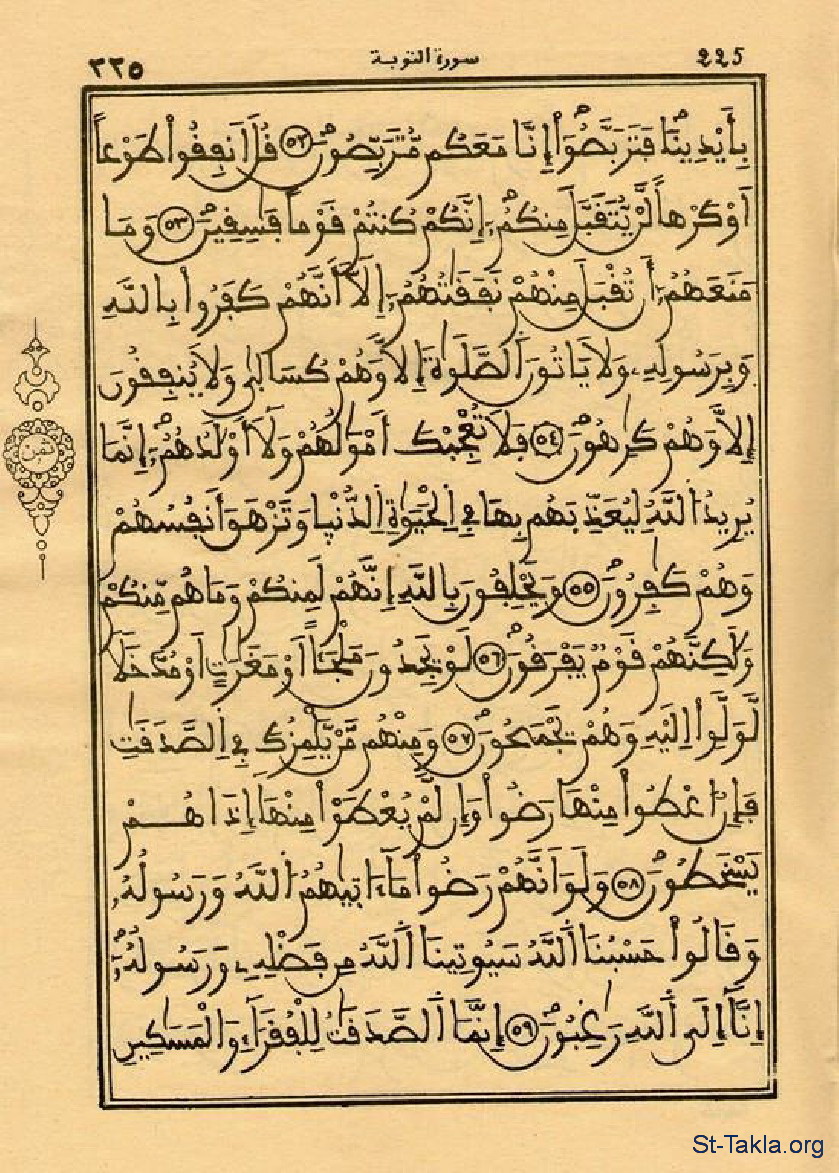 225 سورة التوبة ٢٢٥
بِأَيْدِينَا فَتَرَبَّصُوٓاْ إِنَّا مَعَكُم مُّتَرَبِّصُونَ ٥٢ قُلَ اَنفِقُواْ طَوْعاً
اَوْ كَرْهاً لَّنْ يُّتَقَبَّلَ مِنكُمُۥٓ إِنَّكُمْ كُنتُمْ قَوْماً فَٰسِقِينَ ٥٣ وَمَا
مَنَعَهُمُۥٓ أَن تُقْبَلَ مِنْهُمْ نَفَقَٰتُهُمُۥٓ إِلَّآ أَنَّهُمْ كَفَرُواْ بِاللَّهِ
وَبِرَسُولِهِۦ وَلَا يَاتُونَ اَ۬لصَّلَوٰةَ إِلَّا وَهُمْ كُسَالَىٰ وَلَا يُنفِقُونَ
إِلَّا وَهُمْ كَٰرِهُونَ ٥٤ فَلَا تُعْجِبْكَ أَمْوَٰلُهُمْ وَلَآ أَوْلَٰدُهُمُۥٓ إِنَّمَا
ثمن
يُرِيدُ اُ۬للَّهُ لِيُعَذِّبَهُم بِهَا فِي اِ۬لْحَيَوٰةِ اِ۬لدُّنْيَا وَتَزْهَقَ أَنفُسُهُمْ
وَهُمْ كَٰفِرُونَ ٥٥ وَيَحْلِفُونَ بِاللَّهِ إِنَّهُمْ لَمِنكُمْ وَمَا هُم مِّنكُمْ
وَلَٰكِنَّهُمْ قَوْمٌ يَفْرَقُونَ ٥٦ لَوْ يَجِدُونَ مَلْجَـٔاً اَوْ مَغَٰرَٰتٍ اَوْ مُدَّخَلًا
لَّوَلَّوِاْ اِلَيْهِ وَهُمْ يَجْمَحُونَ ٥٧ وَمِنْهُم مَّنْ يَّلْمِزُكَ فِي اِ۬لصَّدَقَٰتِ
فَإِنُ ا۟عْطُواْ مِنْهَا رَضُواْ وَإِن لَّمْ يُعْطَوْاْ مِنْهَآ إِذَا هُمْ
يَسْخَطُونَ ٥٨ وَلَوَ اَنَّهُمْ رَضُواْ مَآ ءَاتَىٰهُمُ اُ۬للَّهُ وَرَسُولُهُۥ
وَقَالُواْ حَسْبُنَا اَ۬للَّهُ سَيُوتِينَا اَ۬للَّهُ مِن فَضْلِهِۦ وَرَسُولُهُۥٓ
إِنَّآ إِلَى اَ۬للَّهِ رَٰغِبُونَ ٥٩ إِنَّمَا اَ۬لصَّدَقَٰتُ لِلْفُقَرَآءِ وَالْمَسَٰكِينِ
St-Takla.org